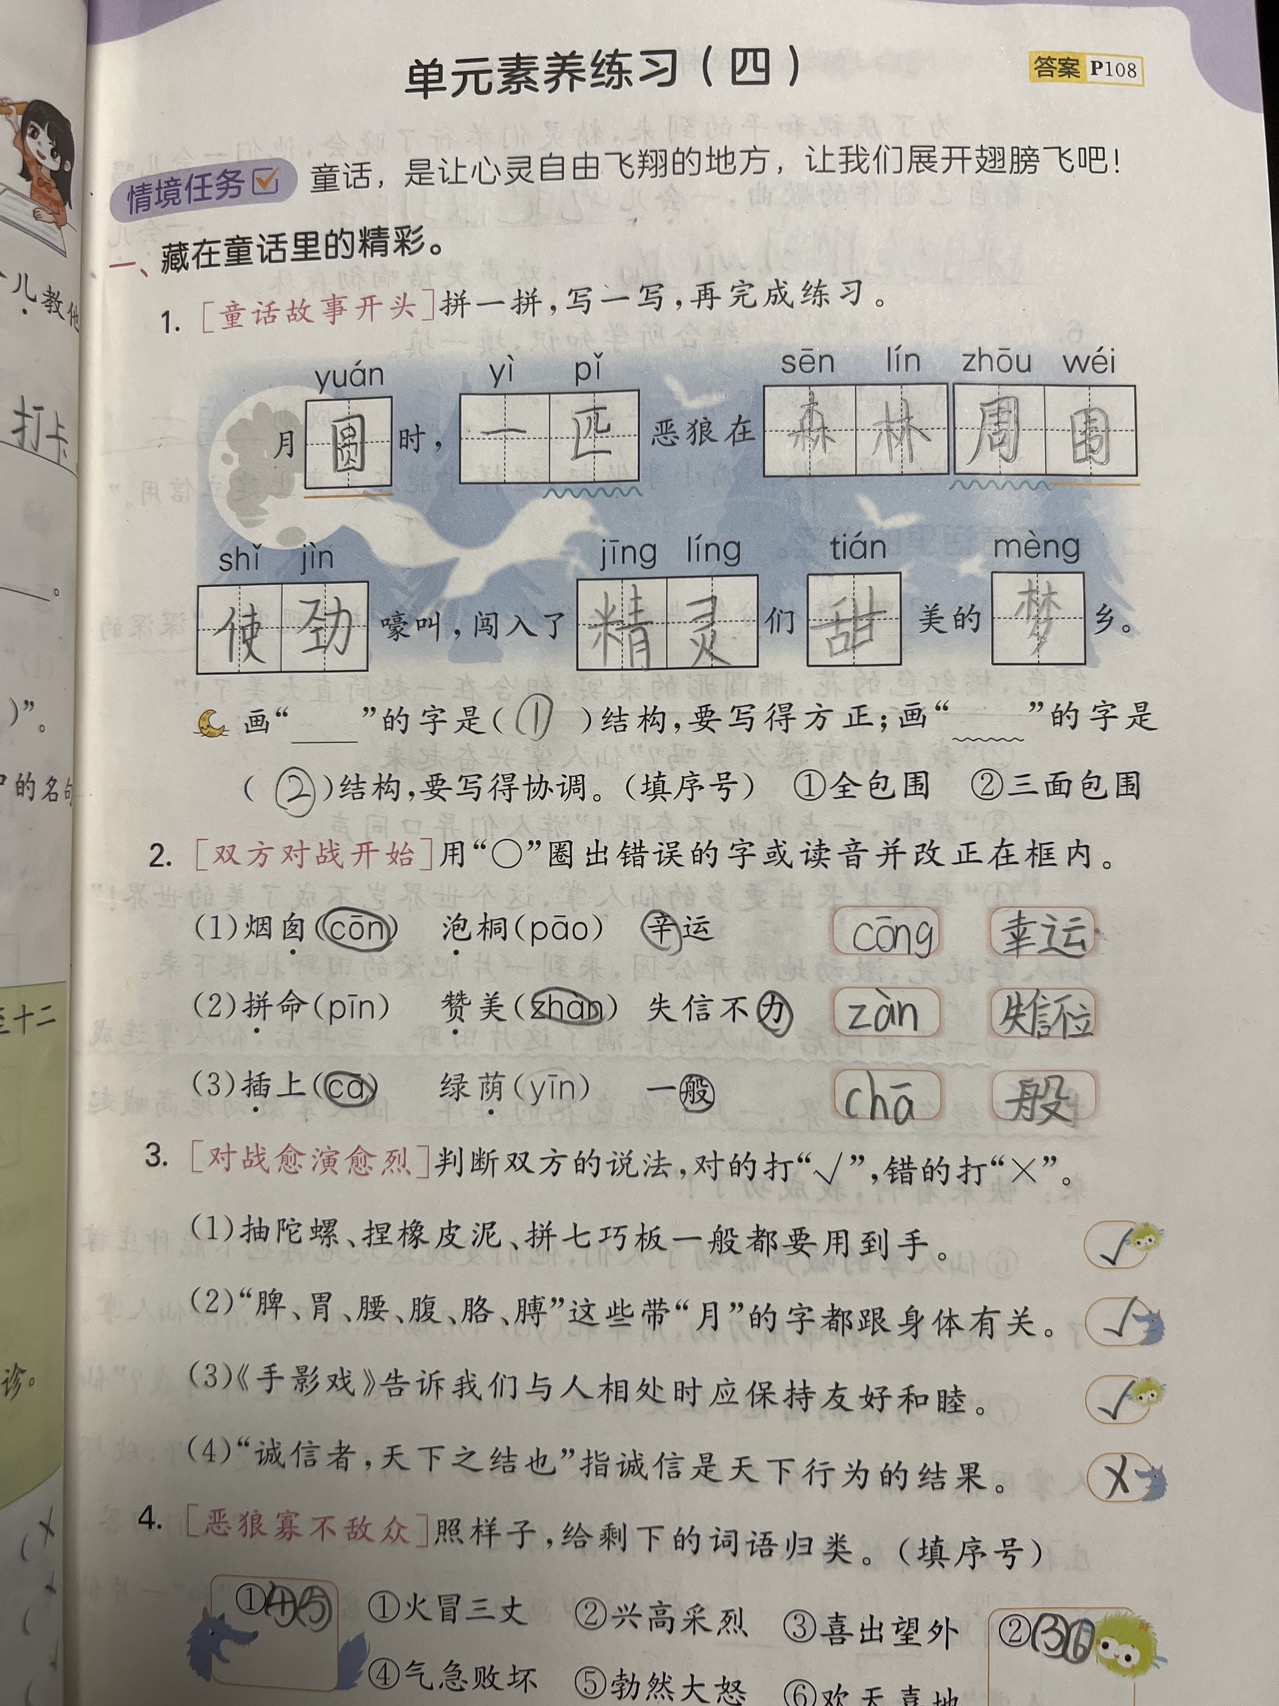 单元素养练习（四）
答案 P108
情境任务 童话，是让心灵自由飞翔的地方，让我们展开翅膀飞吧！
一、藏在童话里的精彩。
1. [童话故事开头]拼一拼，写一写，再完成练习。
yuán yì pǐ sēn lín zhōu wéi
月圆时，一匹恶狼在森林周围
shǐ jìn jīng líng tián mèng
使劲嚎叫，闯入了精灵们甜美的梦乡。
画“___”的字是（①）结构，要写得方正；画“﹏﹏”的字是
（②）结构，要写得协调。（填序号） ①全包围 ②三面包围
2. [双方对战开始]用“○”圈出错误的字或读音并改正在框内。
(1)烟囱(cōn) 泡桐(pāo) 辛运 cōng 幸运
(2)拼命(pīn) 赞美(zhàn) 失信不力 zàn 失信不位
(3)插上(cā) 绿荫(yīn) 一般 chā 般
3. [对战愈演愈烈]判断双方的说法，对的打“√”，错的打“×”。
(1)抽陀螺、捏橡皮泥、拼七巧板一般都要用到手。 √
(2)“脾、胃、腰、腹、胳、膊”这些带“月”的字都跟身体有关。 √
(3)《手影戏》告诉我们与人相处时应保持友好和睦。 √
(4)“诚信者，天下之结也”指诚信是天下行为的结果。 ×
4. [恶狼寡不敌众]照样子，给剩下的词语归类。（填序号）
①④⑤ ①火冒三丈 ②兴高采烈 ③喜出望外 ②③⑥
④气急败坏 ⑤勃然大怒 ⑥欢天喜地
儿教他
打卡
)”。
的名句
至十二
诊。